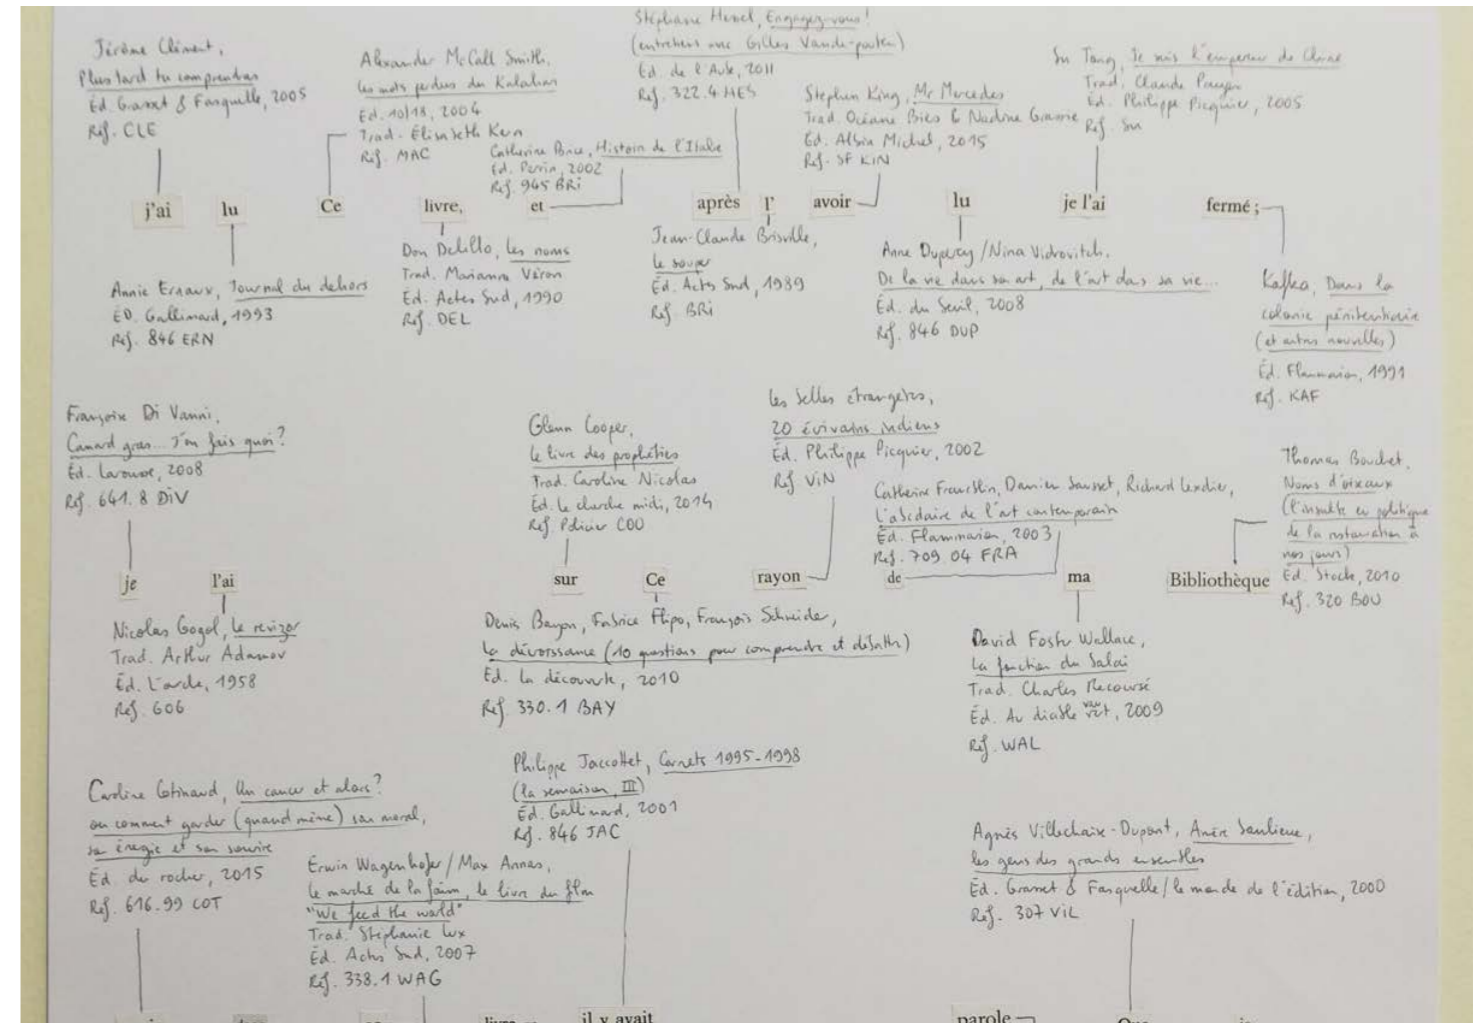 Jérôme Clément,
Plus tard tu comprendras
Éd. Grasset & Fasquelle, 2005
Réf. CLE
Alexander McCall Smith,
Les mots perdus du Kalahari
Éd. 10/18, 2004
Trad. Élisabeth Kern
Réf. MAC
Catherine Brice, Histoire de l'Italie
Éd. Perrin, 2002
Réf. 945 BRi
Stéphane Hessel, Engagez-vous!
(entretiens avec Gilles Vanderpooten)
Éd. de l'Aube, 2011
Réf. 322.4 HES
Stephen King, Mr Mercedes
Trad. Océane Bies & Nadine Gassie
Éd. Albin Michel, 2015
Réf. SF KiN
Su Tong, Je suis l'empereur de Chine
Trad. Claude Payen
Éd. Philippe Picquier, 2005
Réf Su
j'ai lu Ce livre, et après l' avoir lu je l'ai fermé ;
Annie Ernaux, Journal du dehors
ÉD. Gallimard, 1993
Réf. 846 ERN
Don Delillo, Les noms
Trad. Marianne Véron
Éd. Actes Sud, 1990
Réf. DEL
Jean-Claude Brisville,
Le souper
Éd. Actes Sud, 1989
Réf. BRi
Anne Duperey / Nina Vidrovitch.
De la vie dans son art, de l'art dans sa vie...
Éd. du Seuil, 2008
Réf. 846 DUP
Kafka, Dans la
colonie pénitentiaire
(et autres nouvelles)
Éd. Flammarion, 1991
Réf. KAF
Françoise Di Vanni,
Canard gras... T'en fais quoi?
Éd. Larousse, 2008
Réf. 641.8 DiV
Glenn Cooper,
Le livre des prophéties
Trad. Caroline Nicolas
Éd. Le cherche midi, 2014
Réf. Policier COO
Les belles étrangères,
20 écrivains indiens
Éd. Philippe Picquier, 2002
Réf ViN
Catherine Francblin, Damien Sausset, Richard Leydier,
L'abcdaire de l'art contemporain
Éd. Flammarion, 2003
Réf. 709.04 FRA
Thomas Bouchet,
Noms d'oiseaux
(l'insulte en politique
de la restauration à
nos jours)
Éd. Stock, 2010
Réf. 320 BOU
je l'ai sur Ce rayon de ma Bibliothèque
Nicolas Gogol, Le revizor
Trad. Arthur Adamov
Éd. L'arche, 1958
Réf. GOG
Denis Bayon, Fabrice Flipo, François Schneider,
La décroissance (10 questions pour comprendre et débattre)
Éd. La découverte, 2010
Réf. 330.1 BAY
David Foster Wallace,
La fonction du balai
Trad. Charles Recoursé
Éd. Au diable vauvert, 2009
Réf. WAL
Caroline Cotinaud, Un cancer et alors?
ou comment garder (quand même) son moral,
son énergie et son sourire
Éd. du rocher, 2015
Réf. 616.99 COT
Erwin Wagenhofer / Max Annas,
Le marché de la faim, le livre du film
"We feed the world"
Trad. Stéphanie Lux
Éd. Actes Sud, 2007
Réf. 338.1 WAG
Philippe Jaccottet, Carnets 1995-1998
(La semaison, III)
Éd. Gallimard, 2001
Réf. 846 JAC
Agnès Villechaise-Dupont,
les gens des grands ensembles
Éd. Grasset & Fasquelle / le monde de l'édition, 2000
Réf. 307 ViL
livre il y avait parole Que